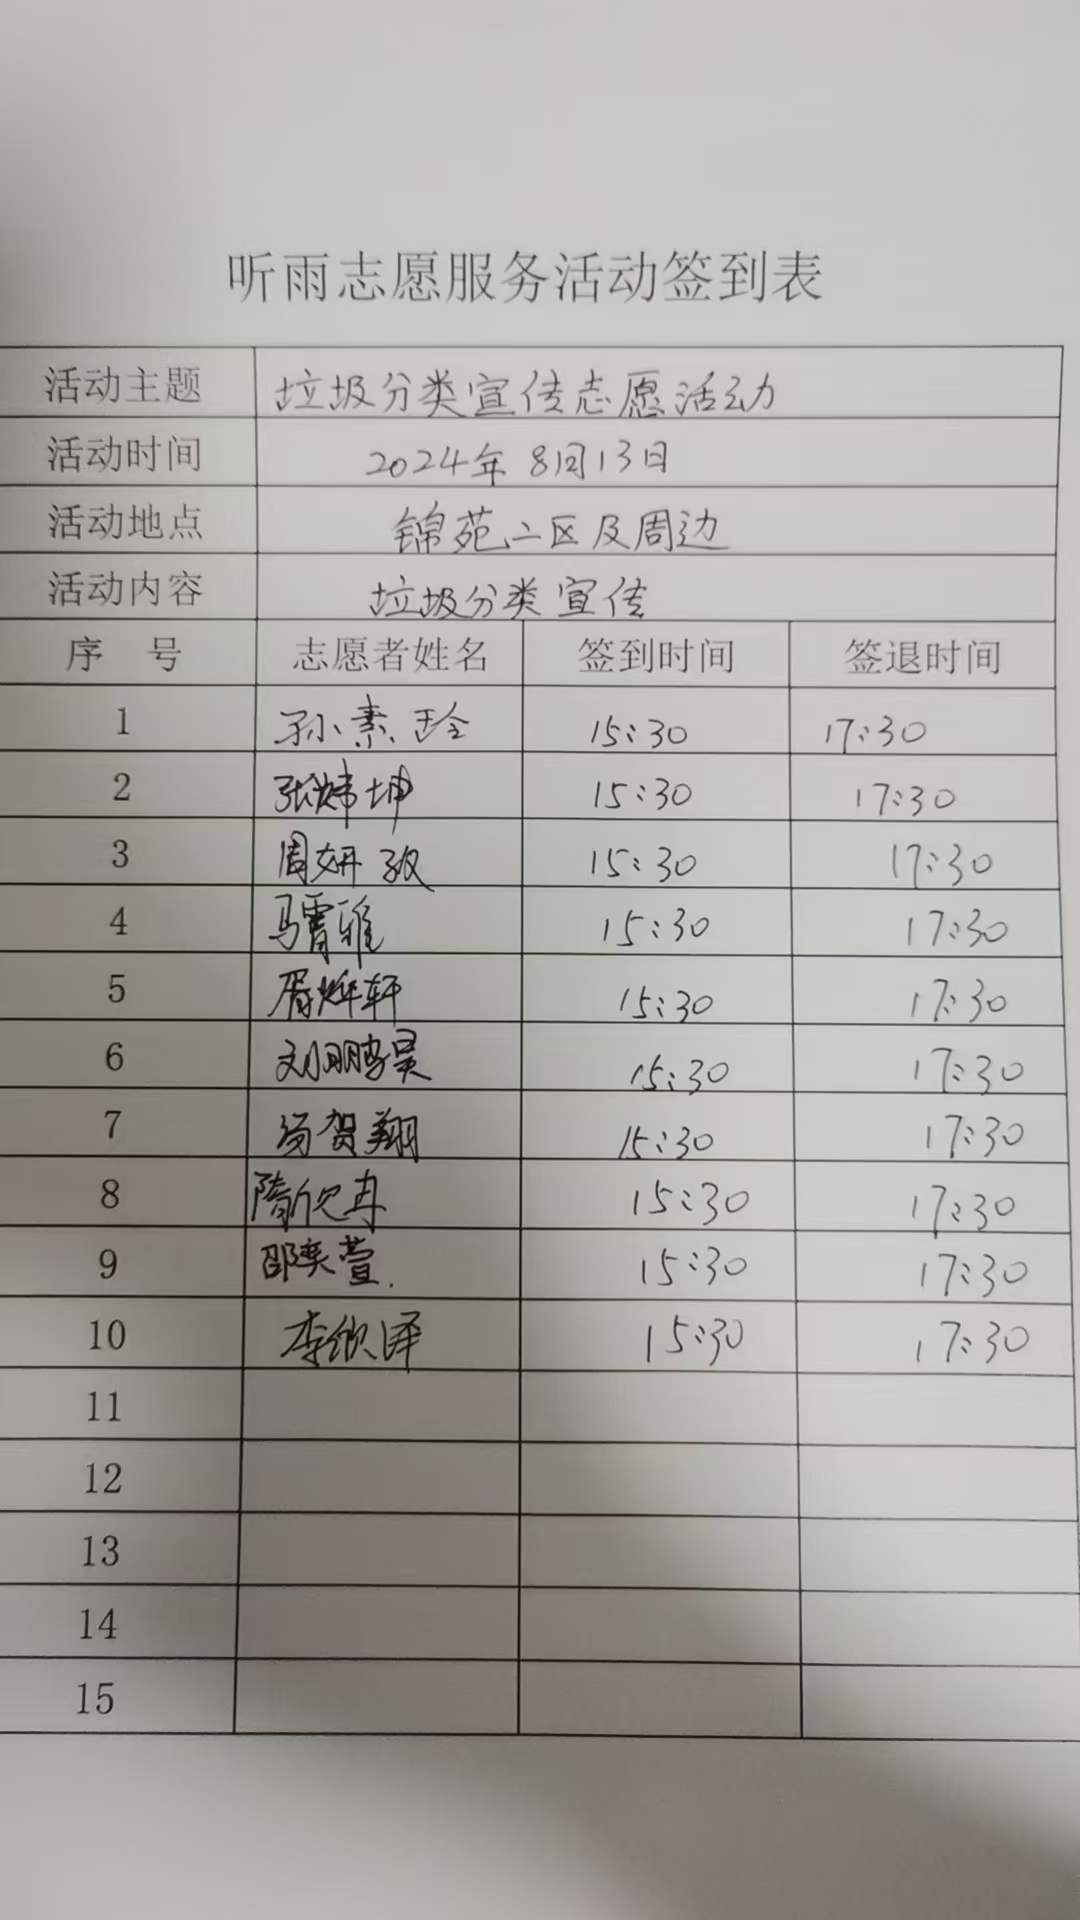 听雨志愿服务活动签到表
活动主题 垃圾分类宣传志愿活动
活动时间 2024年8月13日
活动地点 锦苑二区及周边
活动内容 垃圾分类宣传
序 号 志愿者姓名 签到时间 签退时间
1 孙素玲 15:30 17:30
2 张炜坤 15:30 17:30
3 周妍 15:30 17:30
4 马霄雅 15:30 17:30
5 胥烨轩 15:30 17:30
6 刘鹏昊 15:30 17:30
7 贺翔 15:30 17:30
8 隋欣冉 15:30 17:30
9 邵奕萱. 15:30 17:30
10 李欣泽 15:30 17:30
11
12
13
14
15